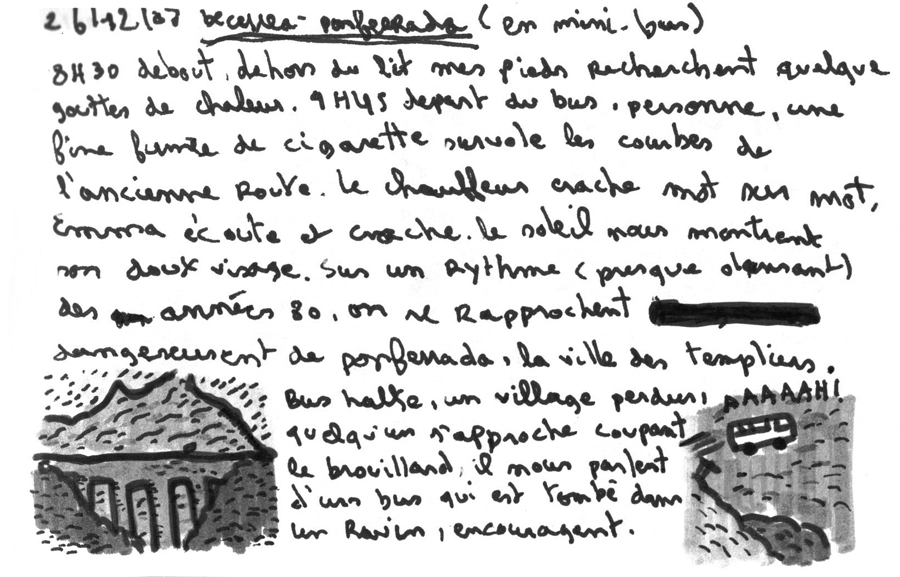 26/12/07 becerrea - ponferrada (en mini-bus)
8H30 debout, dehors du lit mes pieds recherchent quelque
gouttes de chaleur. 9H45 depart du bus, personne, une
fine fumée de cigarette survole les courbes de
l'ancienne Route. le chauffeur crache mot sur mot,
Emma écoute et crache. le soleil nous montrent
son doux visage. Sur un Rythme (presque dansant)
des années 80, on se Rapprochent
dangereusement de ponferrada, la ville des templiers.
Bus halte, un village perdus,
quelqu'un s'approche coupant
le brouillard, il nous parlent
d'un bus qui est tombé dans
un Ravin, encouragent.
AAAAAH!